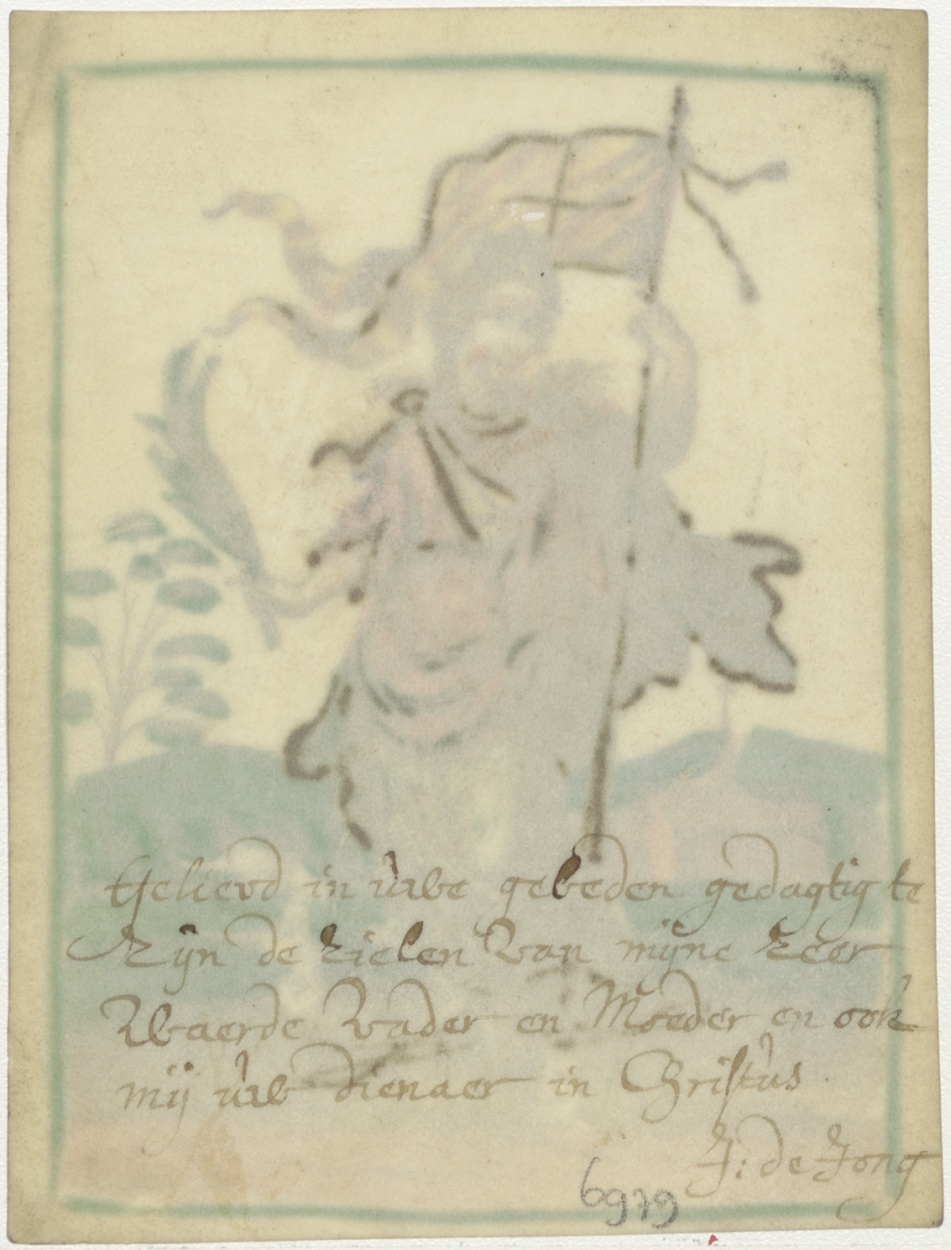 Gelievd in uwe gebeden gedagtig te
Zijn de zielen van mijne zeer
Waerde vader en Moeder en ook
mij uw dienaer in Christus.
J: de Jong
6979